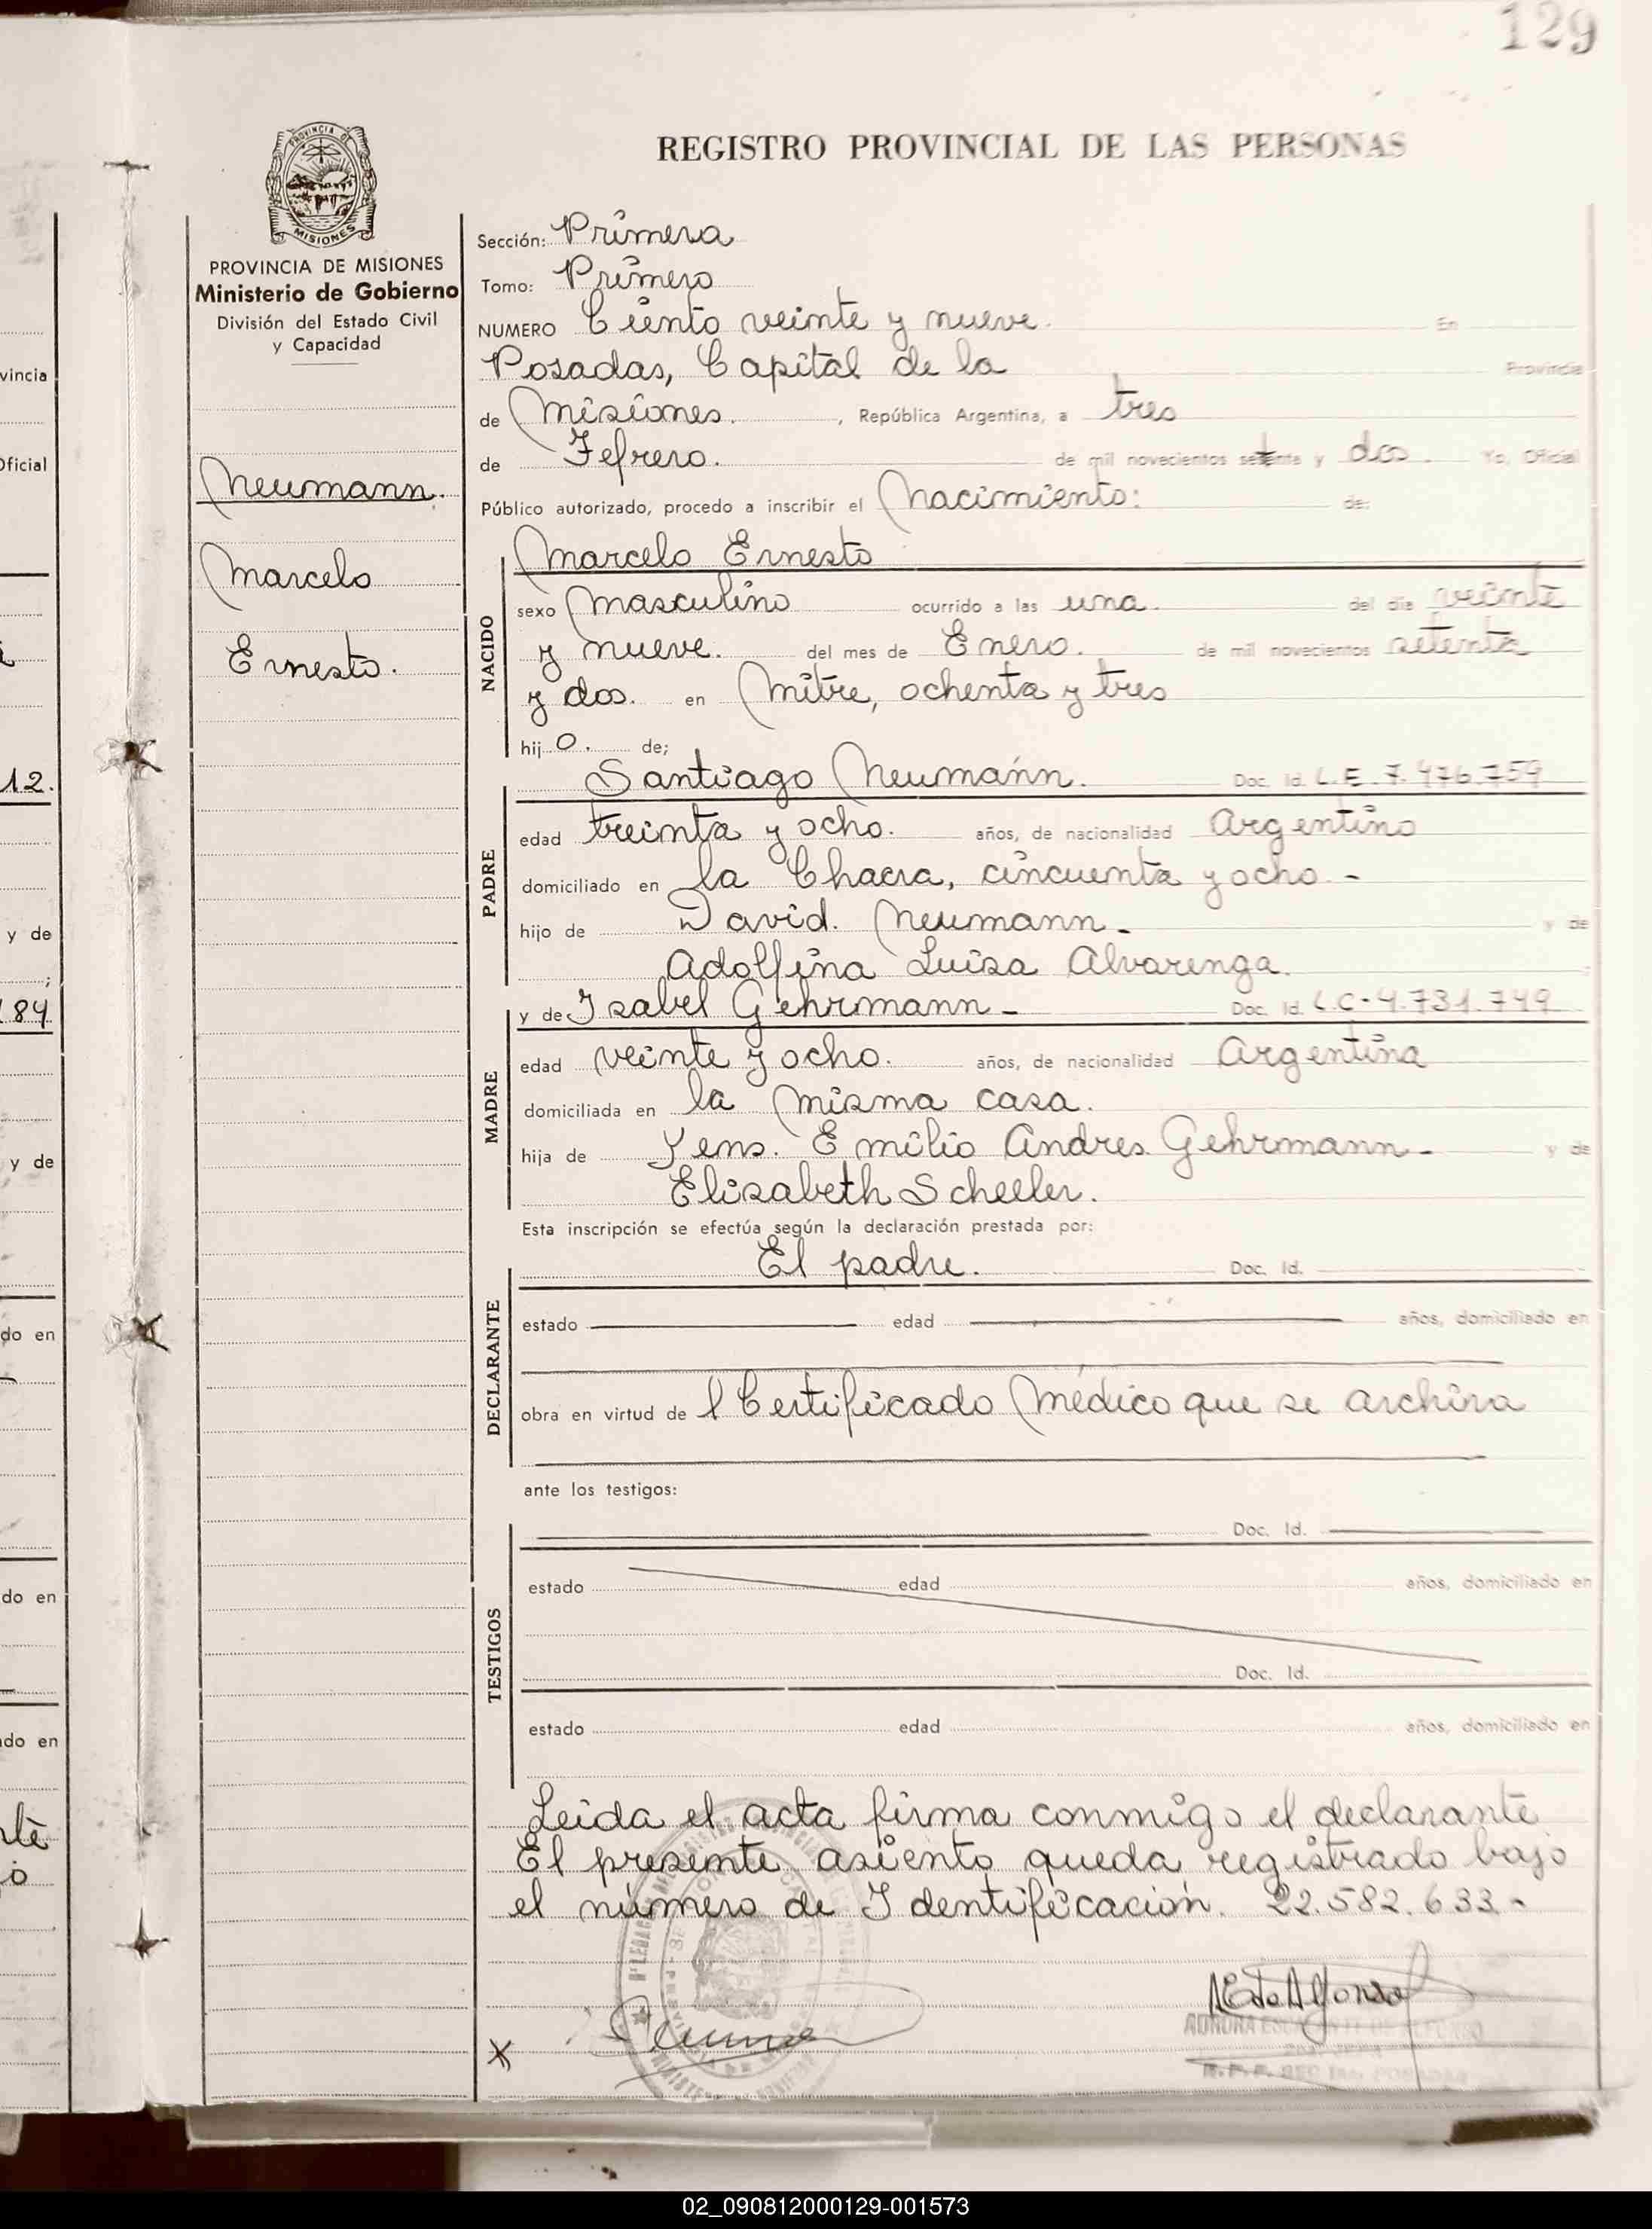 129
REGISTRO PROVINCIAL DE LAS PERSONAS
PROVINCIA DE
MISIONES
PROVINCIA DE MISIONES
Ministerio de Gobierno
División del Estado Civil
y Capacidad
Neumann.
Marcelo
Ernesto.
Sección: Primera
Tomo: Primero
NUMERO Ciento veinte y nueve. En
Posadas, Capital de la Provincia
de Misiones. , República Argentina, a tres
de Fefrero. de mil novecientos setenta y dos. Yo, Oficial
Público autorizado, procedo a inscribir el Nacimiento: de:
NACIDO
Marcelo Ernesto
sexo Masculino ocurrido a las una. del día veinte
y nueve. del mes de Enero. de mil novecientos setenta
y dos. en Mitre, ochenta y tres
hij o. de;
PADRE
Santiago Neumann. Doc. Id. L.E. 7.476.759
edad treinta y ocho. años, de nacionalidad Argentino
domiciliado en la Chacra, cincuenta y ocho -
hijo de David. Neumann - y de
Adolfina Luisa Alvarenga.
y de Isabel Gehrmann - Doc. Id. L.C-4.731.749
MADRE
edad veinte y ocho. años, de nacionalidad Argentina
domiciliada en la misma casa.
hija de Yens. Emilio Andres Gehrmann - y de
Elisabeth Scheeler.
Esta inscripción se efectúa según la declaración prestada por:
DECLARANTE
El padre. Doc. Id.
estado edad años, domiciliado en
obra en virtud de l Certificado Médico que se archiva
ante los testigos:
TESTIGOS
Doc. Id.
estado edad años, domiciliado en
Doc. Id.
estado edad años, domiciliado en
Leida el acta firma conmigo el declarante
El presente asiento queda registrado bajo
el número de Identificación. 22.582.633-
vincia
Oficial
12.
y de
184
y de
do en
do en
do en
02_090812000129-001573